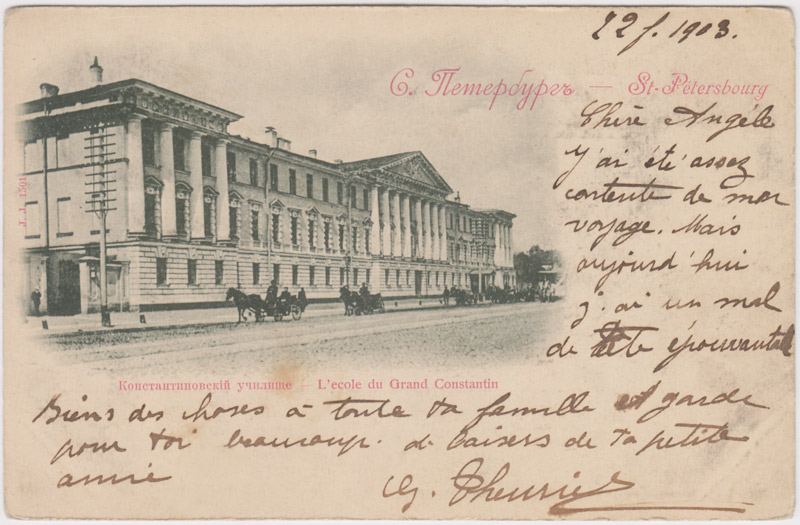 22 f. 1903.
С. Петербургъ — St-Pétersbourg
Chère Angéle
J'ai été assez
contente de mon
voyage. Mais
aujourd'hui
j'ai un mal
de tête épouvantable
J. J. 1501
Константиновскій училище — L'ecole du Grand Constantin
Biens des choses à toute ta famille et garde
pour toi beaucoup de baisers de ta petite
amie
G.